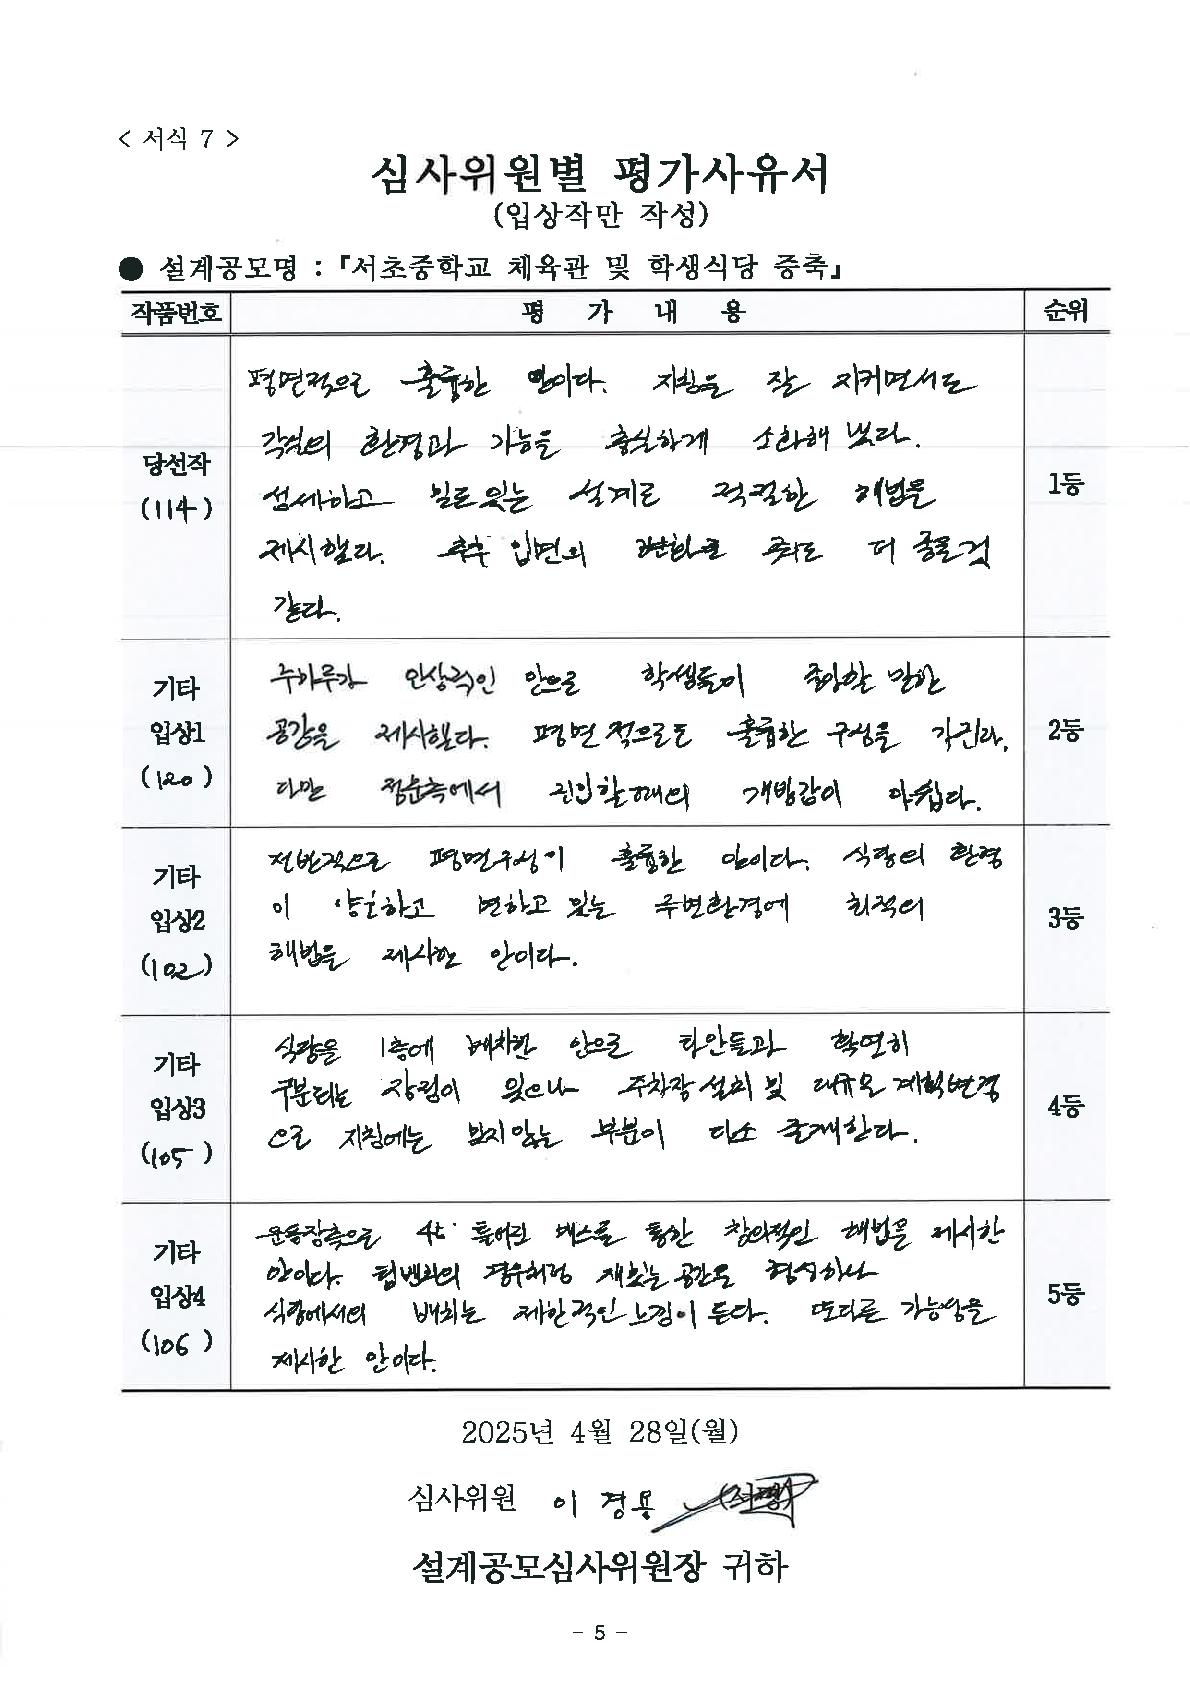 < 서식 7 >
심사위원별 평가사유서
(입상작만 작성)
● 설계공모명 : 『서초중학교 체육관 및 학생식당 증축』
작품번호 평 가 내 용 순위
당선작
(114)
평면적으로 훌륭한 안이다. 지침을 잘 지키면서도
각실의 환경과 기능을 충실하게 소화해 냈다.
섬세하고 밀도있는 설계로 적절한 해법을
제시했다. 추후 입면의 변화를 줘도 더 좋을것
같다.
1등
기타
입상1
(120)
인상적인 안으로 학생들이 좋아할 만한
공간을 제시했다. 평면적으로도 훌륭한 구성을 가진다.
다만 정문측에서 진입할때의 개방감이 아쉽다.
2등
기타
입상2
(102)
전반적으로 평면구성이 훌륭한 안이다. 식당의 환경
이 양호하고 변하고 있는 주변환경에 최적의
해법을 제시한 안이다.
3등
기타
입상3
(105)
식당을 1층에 배치한 안으로 타안들과 확연히
구분되는 장점이 있으나 주차장 설치 및 대규모 계획변경
으로 지침에는 맞지않는 부분이 다소 존재한다.
4등
기타
입상4
(106)
운동장측으로 틀어진 매스를 통한 창의적인 해법을 제시한
안이다. 경우처럼 재밌는 공간을 형성하나
식당에서의 배치는 제한적인 느낌이 든다. 또다른 가능성을
제시한 안이다.
5등
2025년 4월 28일(월)
심사위원 이 경 용
설계공모심사위원장 귀하
- 5 -